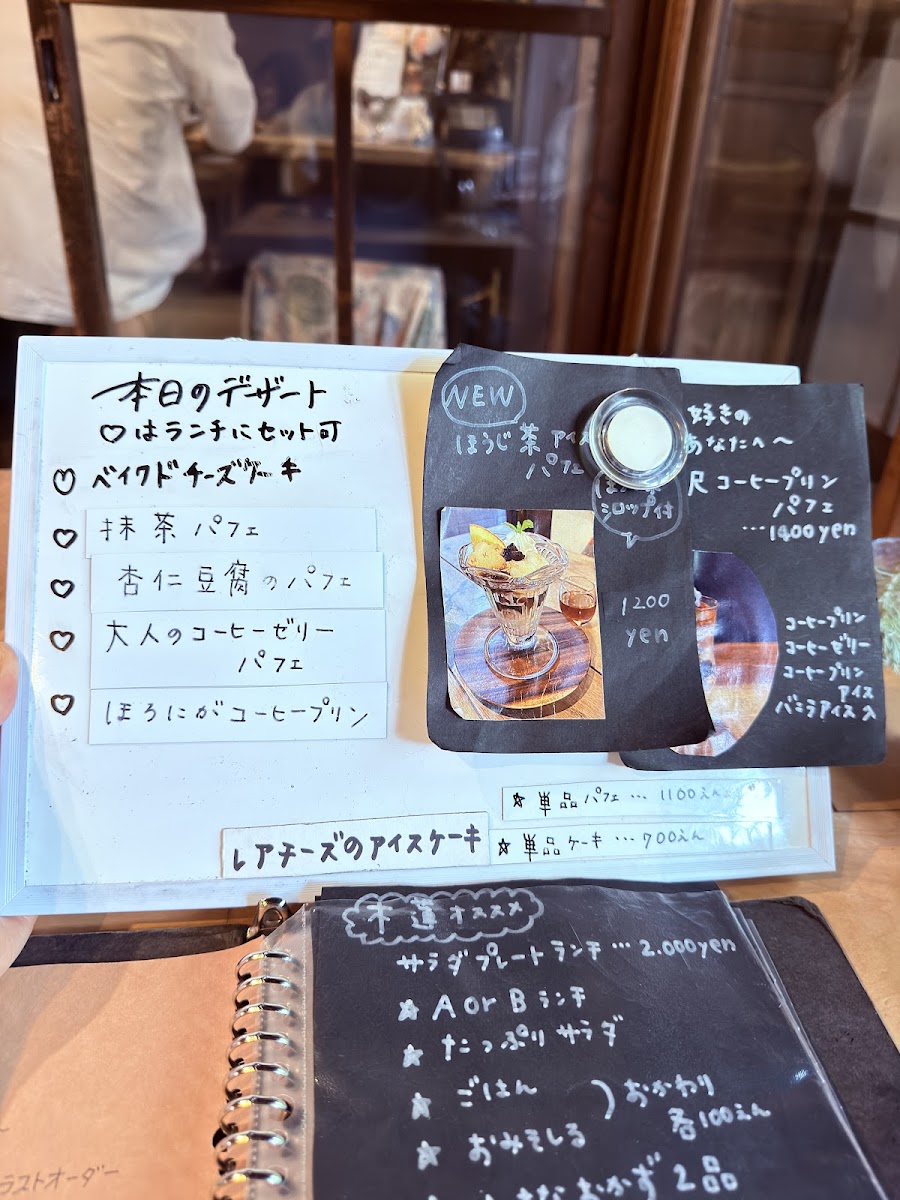 本日のデザート
♡はランチにセット可
♡ ベイクドチーズケーキ
♡ 抹茶パフェ
♡ 杏仁豆腐のパフェ
♡ 大人のコーヒーゼリー
パフェ
♡ ほろにがコーヒープリン
レアチーズのアイスケーキ
☆単品パフェ…1100えん
☆単品ケーキ…700えん
NEW
ほうじ茶アイス
パフェ
シロップ付
1200
yen
好きの
あなたへ〜
コーヒープリン
パフェ
…1400yen
コーヒープリン
コーヒーゼリー
コーヒープリン
アイス
バニラアイス入
木蓮オススメ
サラダプレートランチ…2.000yen
☆ A or B ランチ
☆ たっぷりサラダ
☆ ごはん
☆ おみそしる
)おかわり
各100えん
おかず2品
ラストオーダー